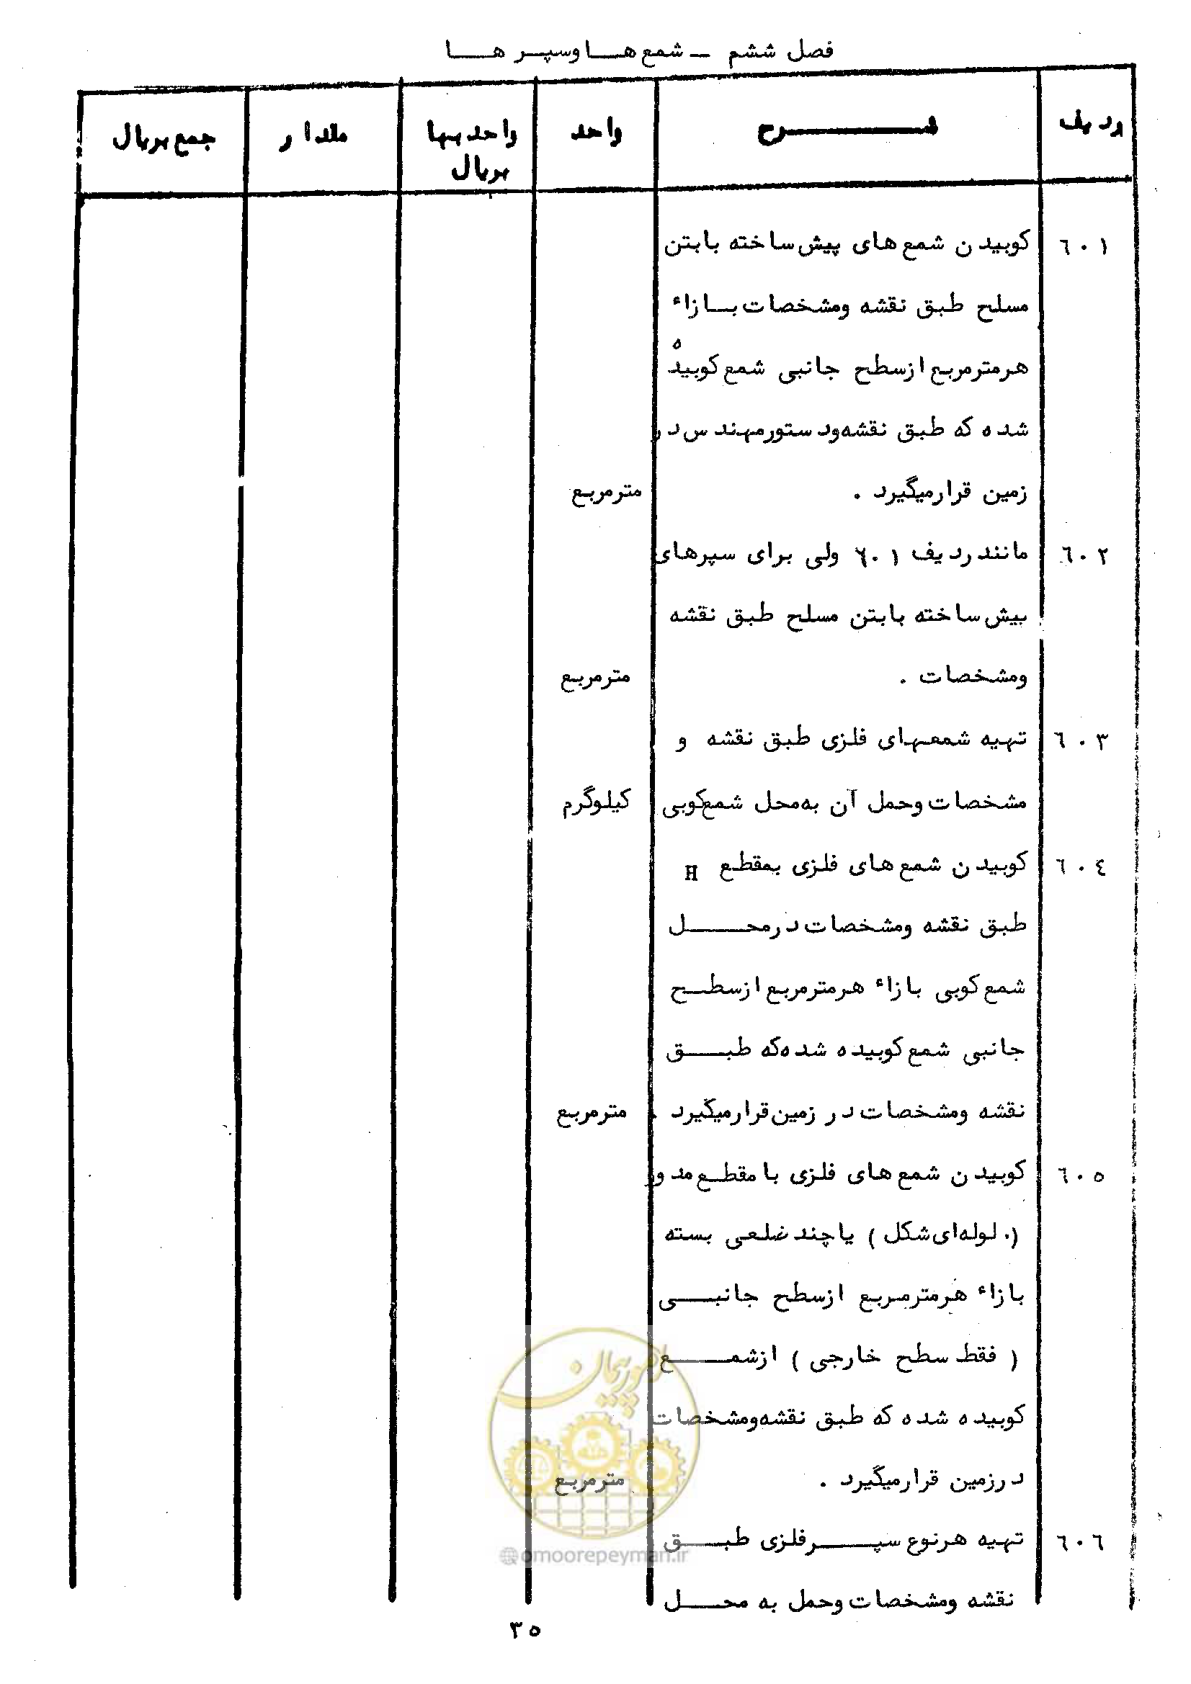 فصل ششم ــ شمع هـــا وسپـر هـــا
ردیف شـــــــرح واحد واحد بهـا بریال مقدار جمع بریال
٦٠١ کوبیدن شمع های پیش ساخته بابتن
مسلح طبق نقشه ومشخصات بــا زاء
هرمترمربع ازسطح جانبی شمع کوبیده
شده که طبق نقشه‌ودستورمهندس در
زمین قرارمیگیرد . مترمربع
٦٠٢ مانندردیف ٦٠١ ولی برای سپرهای
بیش ساخته بابتن مسلح طبق نقشه
ومشخصات . مترمربع
٦٠٣ تهیه شمعهای فلزی طبق نقشه و
مشخصات وحمل آن به‌محل شمع‌کوبی کیلوگرم
٦٠٤ کوبیدن شمع های فلزی بمقطع H
طبق نقشه ومشخصات درمحـــــل
شمع کوبی با زاء هرمترمربع ازسطـــح
جانبی شمع کوبیده شده‌که طبـــق
نقشه ومشخصات در زمین قرارمیگیرد . مترمربع
٦٠٥ کوبیدن شمع های فلزی با مقطع مدور
( لوله‌ای شکل ) یا چند ضلعی بسته
با زاء هرمترمربع ازسطح جانبـــی
( فقط سطح خارجی ) ازشمـــع
کوبیده شده که طبق نقشه‌ومشخصات
درزمین قرارمیگیرد . مترمربع
امور پیمان
٦٠٦ تهیه هرنوع سپـــــرفلزی طبـــق
@omoorepeyman.ir
نقشه ومشخصات وحمل به محـــل
٣٥